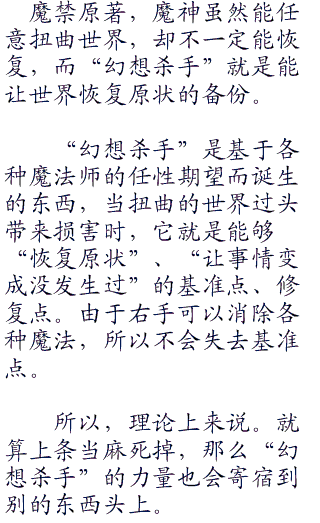 魔禁原著，魔神虽然能任
意扭曲世界，却不一定能恢
复，而“幻想杀手”就是能
让世界恢复原状的备份。
“幻想杀手”是基于各
种魔法师的任性期望而诞生
的东西，当扭曲的世界过头
带来损害时，它就是能够
“恢复原状”、“让事情变
成没发生过”的基准点、修
复点。由于右手可以消除各
种魔法，所以不会失去基准
点。
所以，理论上来说。就
算上条当麻死掉，那么“幻
想杀手”的力量也会寄宿到
别的东西头上。